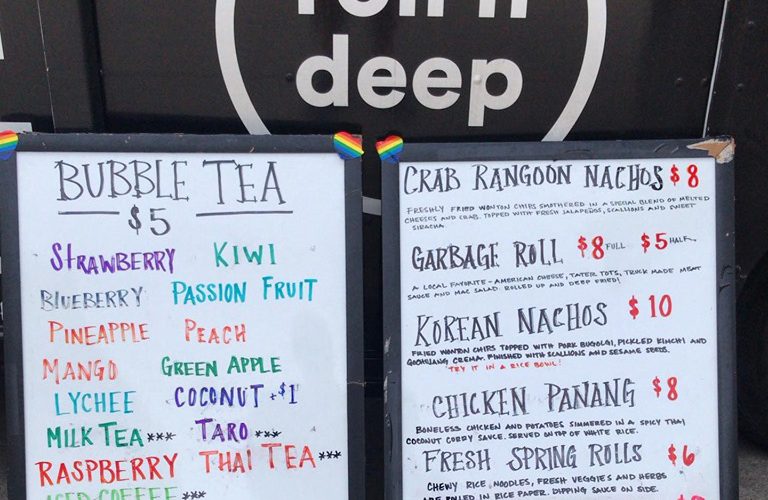 deep
BUBBLE TEA
$5
STRAWBERRY KIWI
BLUEBERRY PASSION FRUIT
PINEAPPLE PEACH
MANGO GREEN APPLE
LYCHEE COCONUT +$1
MILK TEA*** TARO ***
RASPBERRY THAI TEA***
ICED COFFEE ***
CRAB RANGOON NACHOS $8
FRESHLY FRIED WONTON CHIPS SMOTHERED IN A SPECIAL BLEND OF MELTED
CHEESES AND CRAB. TOPPED WITH FRESH JALAPEÑOS, SCALLIONS AND SWEET
SIRACHA.
GARBAGE ROLL $8 FULL $5 HALF
A LOCAL FAVORITE - AMERICAN CHEESE, TATER TOTS, TRUCK MADE MEAT
SAUCE AND MAC SALAD. ROLLED UP AND DEEP FRIED!
KOREAN NACHOS $10
FRIED WONTON CHIPS TOPPED WITH PORK BUGOLGI, PICKLED KIMCHI AND
GOCHUJANG CREMA. FINISHED WITH SCALLIONS AND SESAME SEEDS.
TRY IT IN A RICE BOWL!
CHICKEN PANANG $8
BONELESS CHICKEN AND POTATOES SIMMERED IN A SPICY THAI
COCONUT CURRY SAUCE. SERVED ON TOP OF WHITE RICE.
FRESH SPRING ROLLS $6
CHEWY RICE NOODLES, FRESH VEGGIES AND HERBS
ARE ROLLED IN RICE PAPER. DIPPING SAUCE ON SIDE.